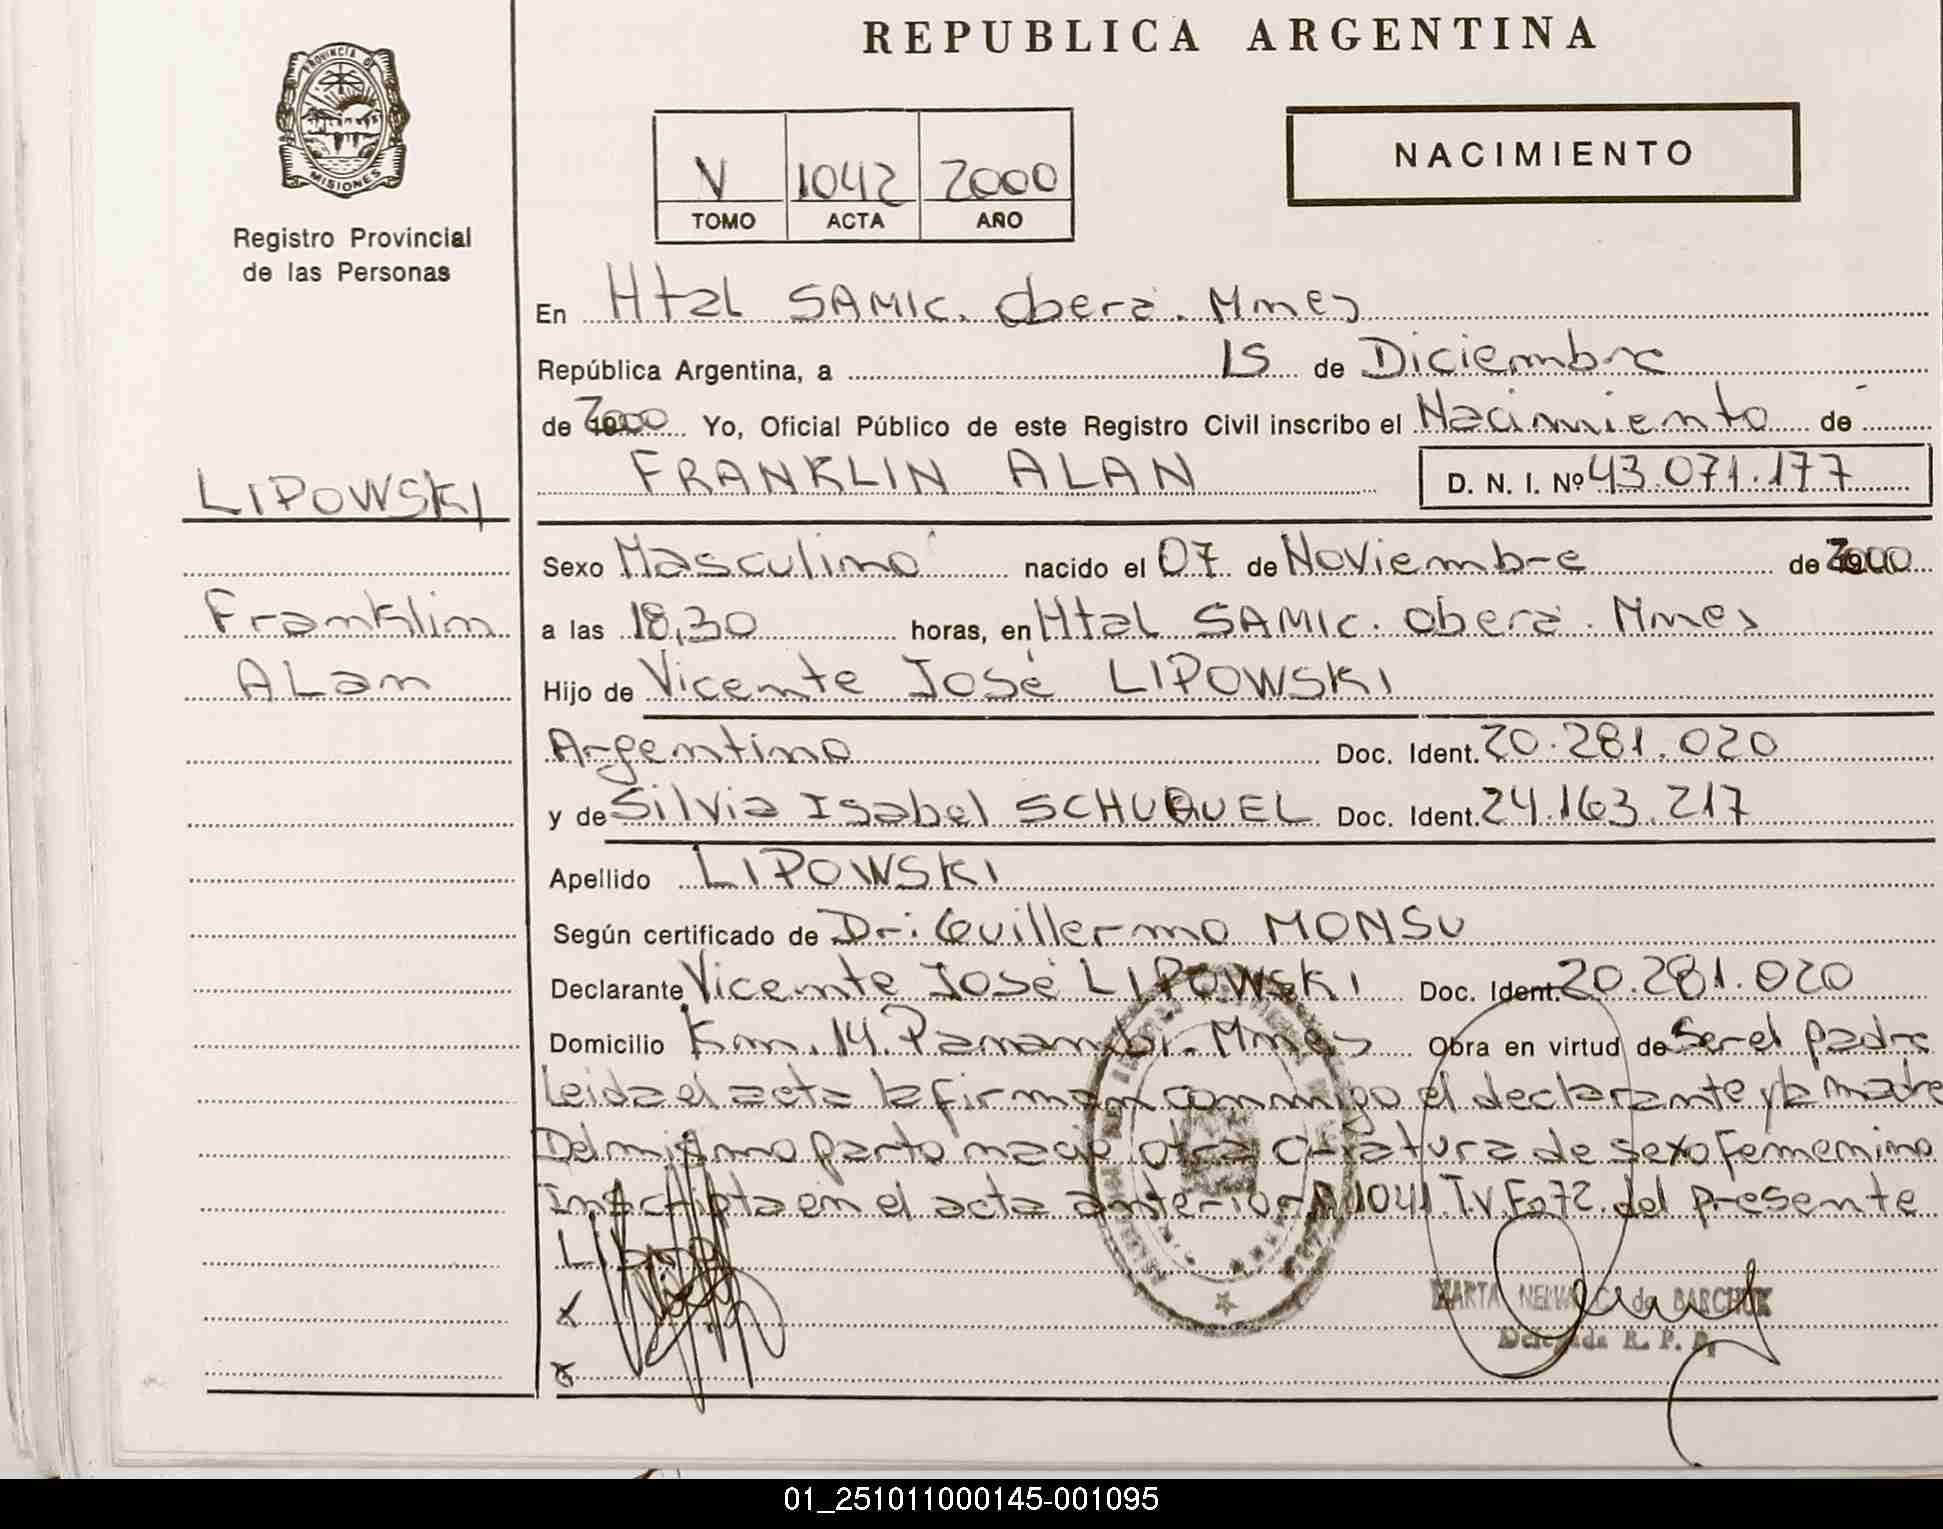 REPUBLICA ARGENTINA
PROVINCIA DE
MISIONES
Registro Provincial
de las Personas
V 1042 2000
TOMO ACTA AÑO
NACIMIENTO
En Htal SAMIC. Oberá. Mnes
República Argentina, a 15 de Diciembre
de 2000 Yo, Oficial Público de este Registro Civil inscribo el Nacimiento de
FRANKLIN ALAN D. N. I. Nº 43.071.177
LIPOWSKI
Franklin
ALan
Sexo Masculino nacido el 07 de Noviembre de 2000
a las 18,30 horas, en Htal SAMIC. Oberá. Mnes
Hijo de Vicente José LIPOWSKI
Argentino Doc. Ident. 20.281.020
y de Silvia Isabel Doc. Ident. 24.163.217
Apellido LIPOWSKI
Según certificado de Dr: Guillermo MONSU
Declarante Vicente José LIPOWSKI Doc. Ident. 20.281.020
Domicilio Km. 14. Panambi. Mnes Obra en virtud de Ser el padre
Leida el acta la firman conmigo el declarante y la madre
Del mismo parto nacio otra criatura de sexo Femenino
Inscripta en el acta anterior A 1041. T.V. Fo 72. del presente
Libro
MARTA NELVA C. de BARCHUK
Delegada R. P. P.
01_251011000145-001095